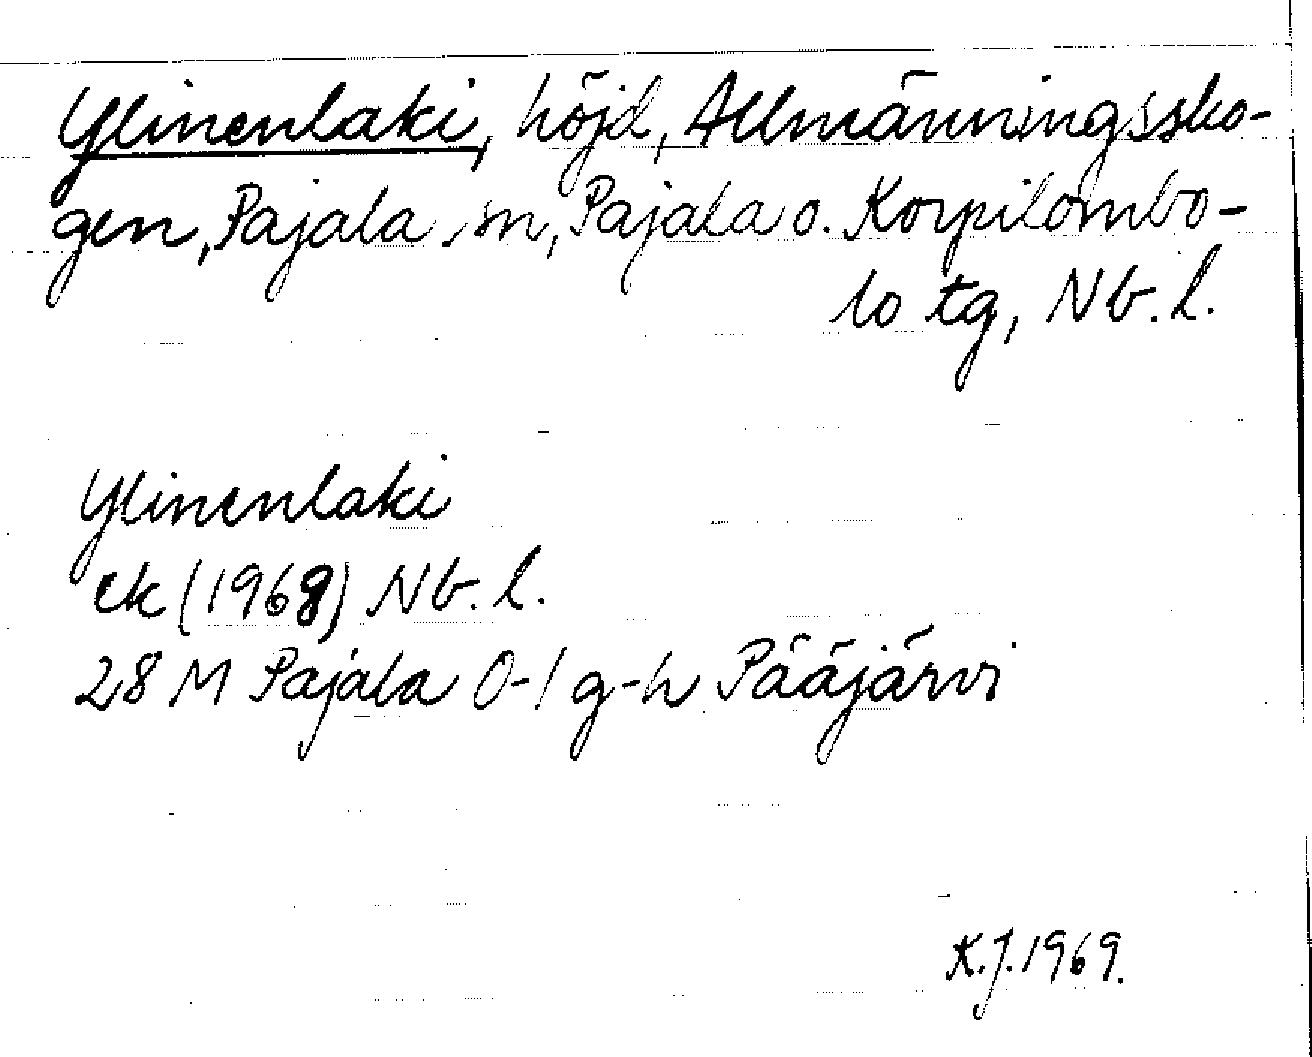 Ylinenlaki, höjd, Allmänningssko-
gen, Pajala sn, Pajala o. Korpilombo-
lo tg, Nb. l.
Ylinenlaki
ek (1968) Nb. l.
28 M Pajala 0-1 g-h Pääjärvi
K.J. 1969.